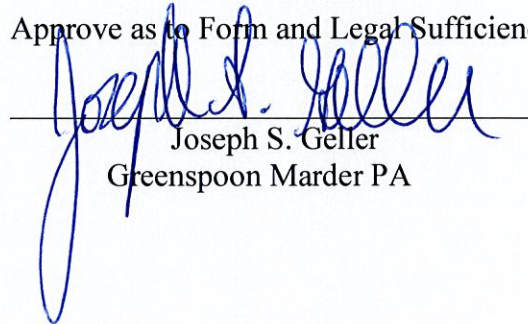 Approve as to Form and Legal Sufficienc
Joseph S. Geller
Joseph S. Geller
Greenspoon Marder PA